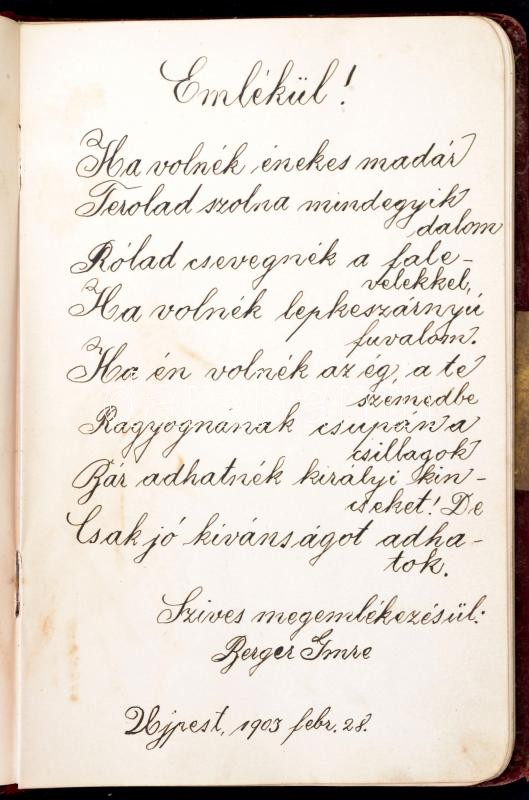 Emlékül!
Ha volnék énekes madár
Terolad szolna mindegyik
dalom
Rólad csevegnék a fale-
velekkel,
Ha volnék lepkeszárnyú
fuvalom.
Ha én volnék az ég, a te
szemedbe
Ragyognának csupán a
csillagok
Bár adhatnék királyi kin-
cseket! De
Csak jó kivánságot adha-
tok.
Szives megemlékezésül:
Berger Imre
Ujpest, 1903 febr. 28.